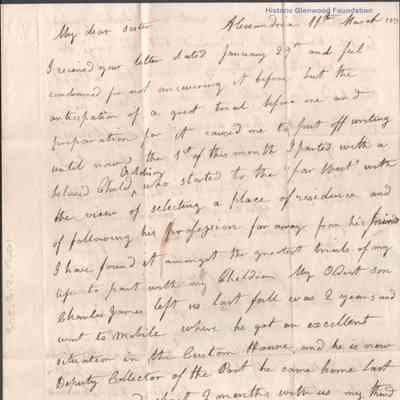 Historic Glenwood Foundation
Alexandria 11th March
My dear sister
I received your letter dated January 29th and feel
condemned for not answering it before but the
anticipation of a great trial before me and
preparation for it caused me to put off writing
until now. the 1st of this month I parted with a
beloved Child, who started to the "far West" with
the view of selecting a place of residence and
of following his profession far away from his friends
I have found it amongst the greatest trials of my
life to part with my Children My Oldest son
Charles James left us last fall was 2 years and
went to Mobile where he got an excellent
situation in the Custom House, and he is now
Deputy Collector of the Port he came home last
2 months with us my third